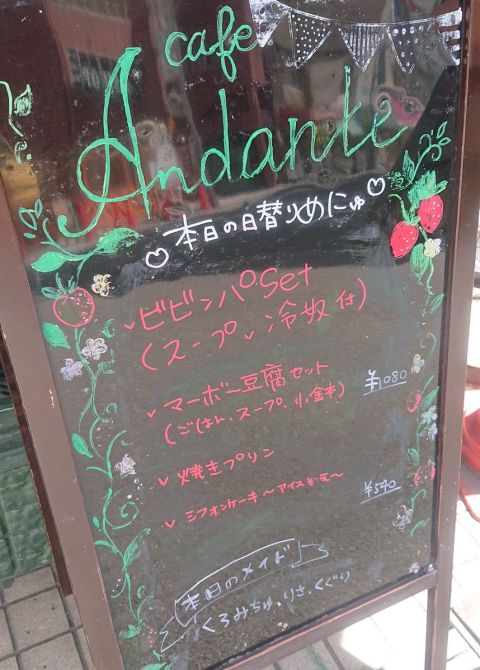 cafe
Andante
本日の日替りめにゅ
ビビンパSet
(スープ、冷奴付)
マーボー豆腐セット
(ごはん、スープ、小鉢)
¥1080
焼きプリン
シフォンケーキ〜アイス
¥540
本日のメイド
くろみちゅ、りさ、くぐり